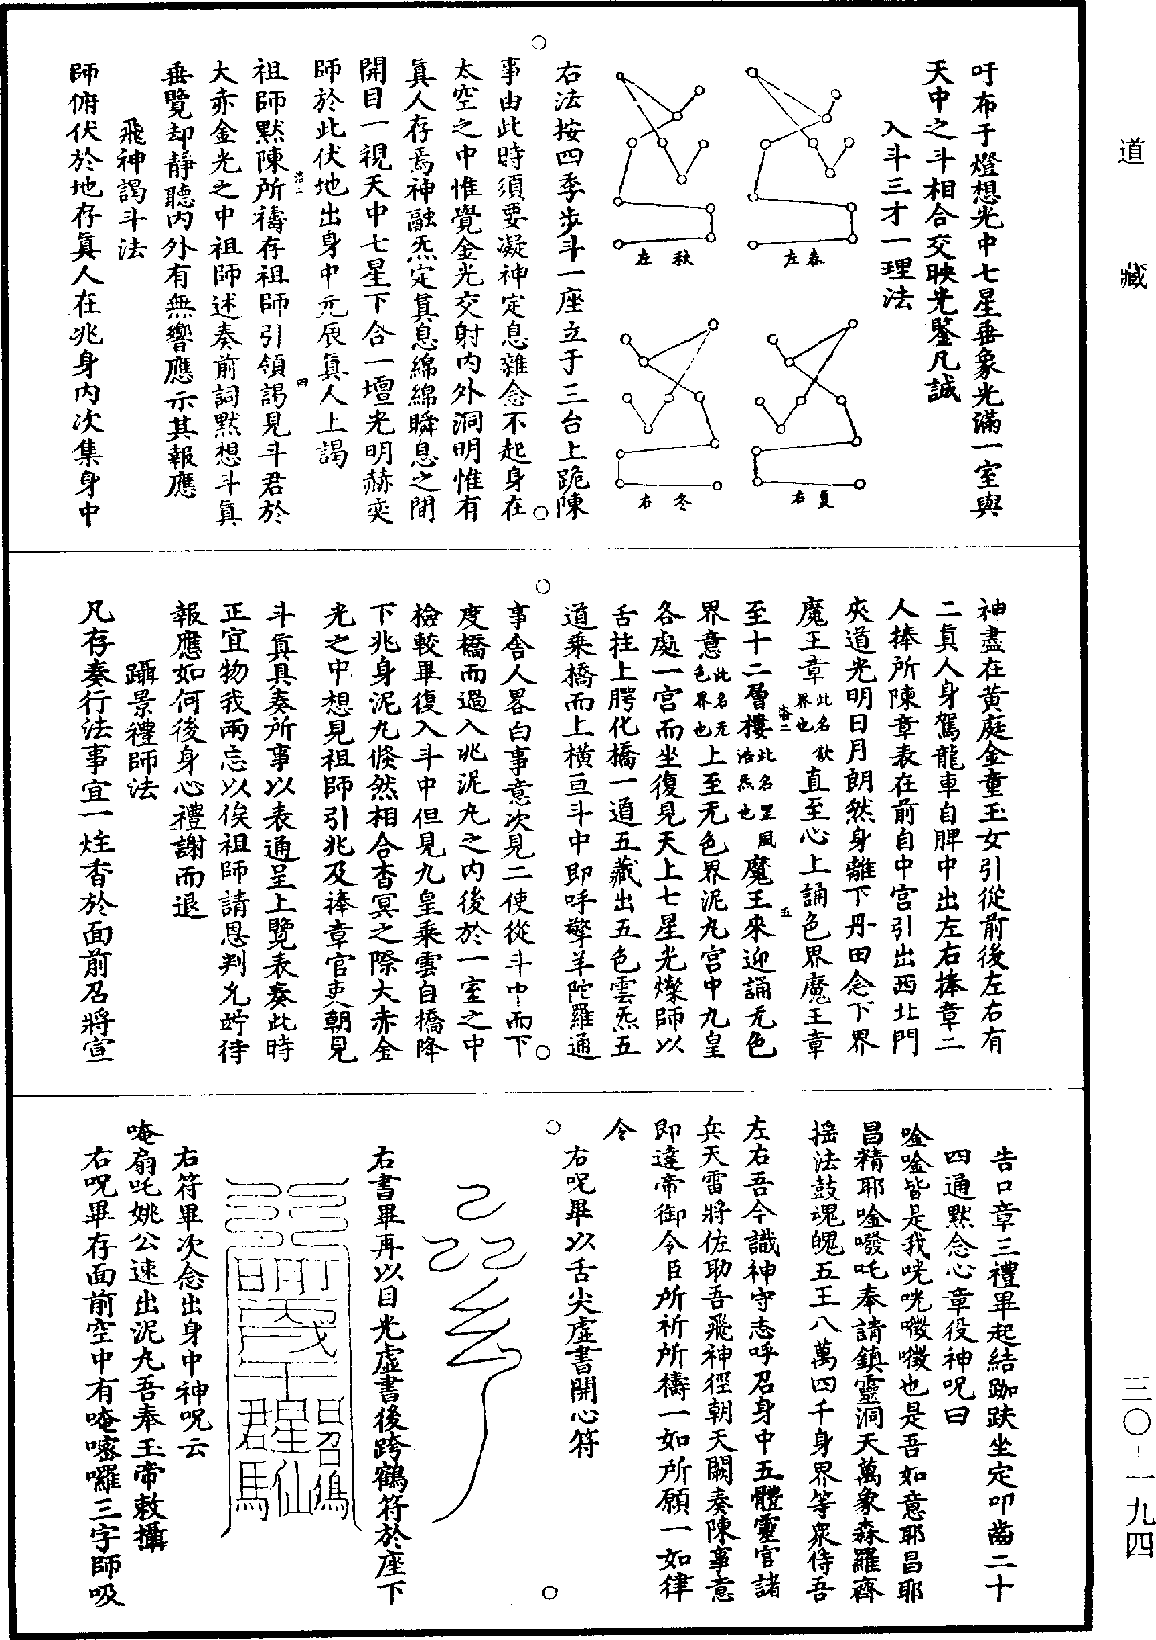 道藏
三〇-一九四
吁布于燈想光中七星垂象光滿一室與
天中之斗相合交映光鑒凡誠
入斗三才一理法
春左
秋左
夏右
冬右
右法按四季步斗一座立于三台上跪陳
事由此時須要凝神定息雜念不起身在
太空之中惟覺金光交射内外洞明惟有
真人存焉神融炁定其息綿綿瞬息之間
開目一視天中七星下合一壇光明赫奕
師於此伏地出身中元辰真人上謁
祖師默陳所禱存祖師引領謁見斗君於
大赤金光之中祖師述奏前詞默想斗真
垂覽却靜聽内外有無響應示其報應
飛神謁斗法
師俯伏於地存真人在兆身内次集身中
神盡在黄庭金童玉女引從前後左右有
二真人身駕龍車自脾中出左右捧章二
人捧所陳章表在前自中宫引出西北門
夾道光明日月朗然身離下丹田念下界
魔王章此名欲界也直至心上誦色界魔王章
至十二層樓此名罡風浩炁也魔王來迎誦无色
界意此名无色界也上至无色界泥丸宫中九皇
各處一宫而坐復見天上七星光燦師以
舌拄上腭化橋一道五藏出五色雲炁五
道乘橋而上橫亘斗中即呼擎羊陀羅通
事舍人畧白事意次見二使從斗中而下
度橋而過入兆泥丸之内後於一室之中
檢較畢復入斗中但見九皇乘雲自橋降
下兆身泥丸倐然相合杳冥之際大赤金
光之中想見祖師引兆及捧章官吏朝見
斗真具奏所事以表通呈上覽表奏此時
正宜物我兩忘以俟祖師請恩判允竚待
報應如何後身心禮謝而退
躡景禮師法
凡存奏行法事宜一炷香於面前召將宣
告口章三禮畢起結跏趺坐定叩齒二十
四通默念心章役神呪曰
唫唫皆是我咣咣㘈㘈也是吾如意耶昌耶
昌精耶唫㘈吒奉請鎮靈洞天萬象森羅齊
摇法鼓魂魄五王八萬四千身界等衆侍吾
左右吾今識神守志呼召身中五體靈官諸
兵天雷將佐助吾飛神徑朝天闕奏陳事意
即達帝御今臣所祈所禱一如所願一如律
令
右呪畢以舌尖虚書開心符
右書畢再以目光虚書後跨鶴符於座下
右符畢次念出身中神呪云
唵扇吒姚公速出泥丸吾奉玉帝敕攝
右呪畢存面前空中有唵㗭囉三字師吸